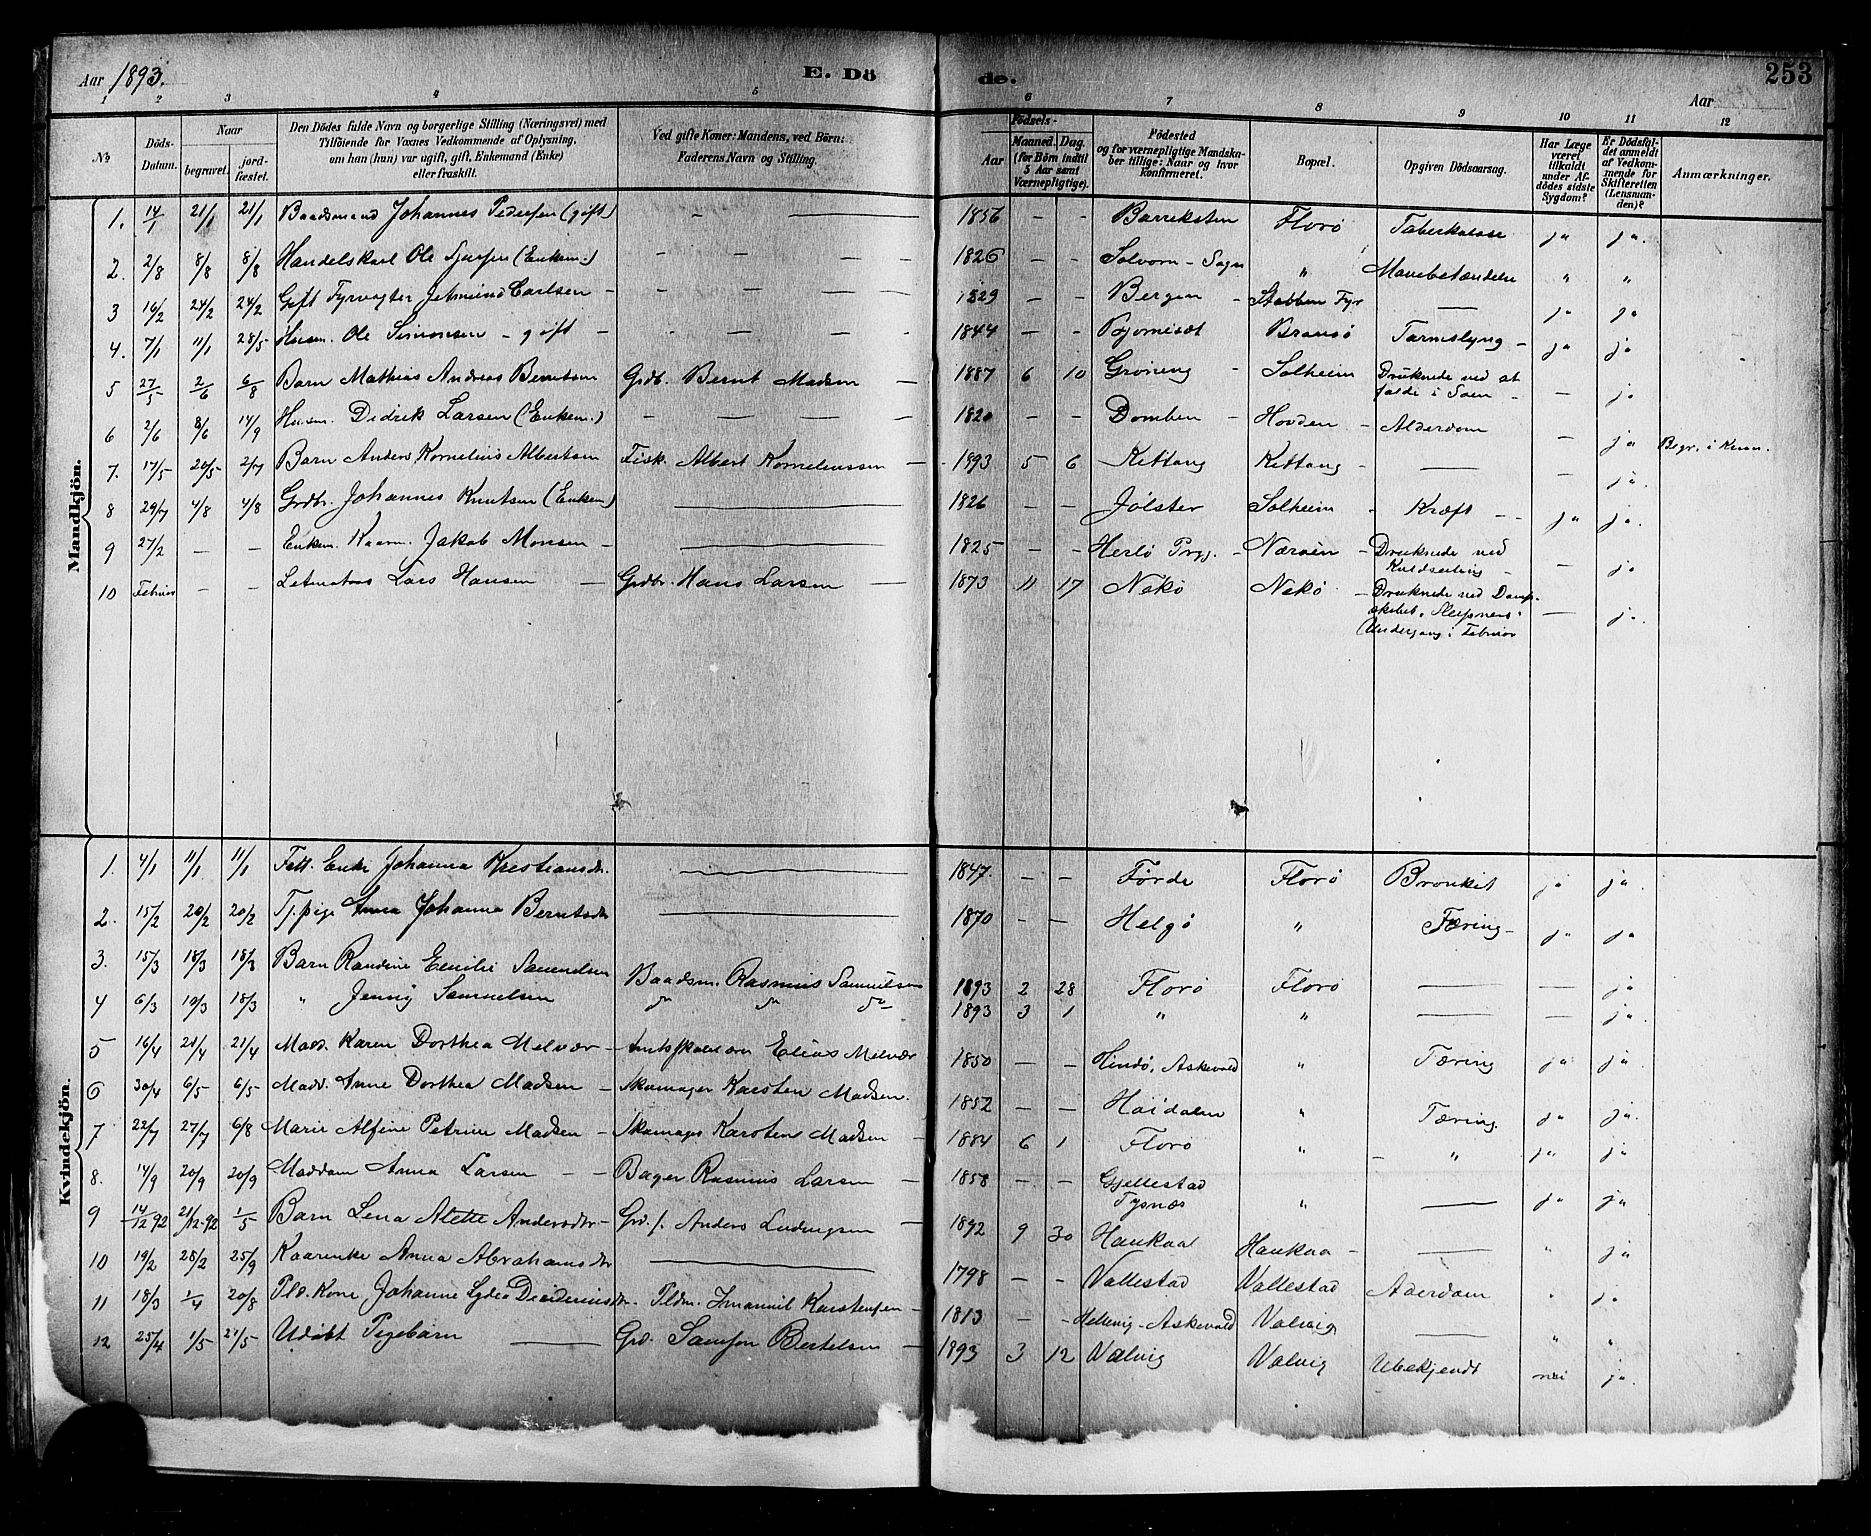 Aar 1893. E. Dö de. 253
Aar
1 2 3 4 5 6 7 8 9 10 11 12
№
Döds-Datum.
Naar
begravet. jordfæstet.
Den Dödes fulde Navn og borgerlige Stilling (Næringsvei) med
Tilföiende for Voxnes Vedkommende af Oplysning,
om han (hun) var ugift, gift, Enkemand (Enke)
eller fraskilt.
Ved gifte Koner: Mandens, ved Börn:
Faderens Navn og Stilling.
Födsels-
Aar Maaned. Dag.
(for Börn indtil
5 Aar samt
Værnepligtige).
Födested
og for værnepligtige Mandskaber tillige: Naar og hvor
konfirmeret.
Bopæl.
Opgiven Dödsaarsag.
Har Læge
været
tilkaldt
under Afdödes sidste
Sygdom?
Er Dödsfaldet anmeldt
af Vedkommende for
Skifteretten
(Lensmanden)?
Anmærkninger.
Mandkjön.
1. 14/1 21/1 21/1 Baadsmand Johannes Pedersen (gift) - — 1856 - - Barreksten Florø Tuberkulose ja ja.
2. 2/8 8/8 8/8 Handelskarl Ole (Enkem.) - - - 1826 - - Solvorn - Sogn " Mavebetændelse " "
3 16/2 24/2 24/2 Gift Fyrvogter Jetmund Carlsen - - - - 1829 - - Bergen - Stabben Fyr — ja ja
4. 7/1 11/1 28/5 Husm. Ole Simonsen - gift - - - - 1844 - - Bransø Tarmslyng - ja ja
5 27/5 2/6 6/8 Barn Mathias Andreas Berntsen Grdb. Bernt Madsen - 1887 6 10 Grøning - Solheim Druknede ved at
falde i Søen - - ja
6 2/6 8/6 14/9 Husm. Didrik Larsen (Enkem.) - - - - 1820 - - Domben - Hovden - Alderdom - ja Begr. i Kinn.
7. 17/5 20/5 2/7 Barn Anders Kornelius Albertsen Fisk. Albert Korneliussen - 1893 5 6 Kittang Kittang - — - ja.
8 29/7 4/8 4/8 Grdbr. Johannes Knutsen (Enkem) — 1826 - - Jølster Solheim - Kræft - - ja ja.
9 27/2 - - Enkem. Kaarm. Jakob Monsen - — 1825 - - Herlø Prgj. - Nærøen - Druknede ved
Kuldseiling - - ja
10 Februar - - Letmatros Lars Hansen - Grdbr. Hans Larsen - 1873 11 17 Nekø Nekø - Druknede ved Dampskibet "Sleipners"
Undergang i Februar - ja.
Kvindekjön.
1. 4/1 11/1 11/1 Fatt. Enke Johanna Kristiansdtr. — 1847. - - Førde Florø Bronkit ja ja.
2. 15/2 20/2 20/2 Tj.pige Anna Johanna Berntsdtr — 1870 - - Helgø " Tæring - ja ja
3. 15/3 18/3 18/3 Barn Randine Emilie Samuelsen Baadsm. Rasmus Samuelsen 1893 2 28 Florø Florø — - ja
4 6/3 10/3 18/3 " Jenny Samuelsen do do do 1893 3 1 " " — - ja.
5 16/4 21/4 21/4 Mad. Karen Dorthea Melvær - Amtsskolelærer Elias Melvær 1850 - - Hindø, Askevold " Tæring ja ja
6 30/4 6/5 6/5 Mad. Anne Dorthea Madsen - Skomager Karsten Madsen. 1852 - - Høidalen " Tæring. ja ja.
7 22/7 27/7 6/8 Marie Alfine Petrine Madsen - Skomager Karsten Madsen - 1884 6 1 Florø " - " ja ja
8. 14/9 20/9 20/9 Maddam Anna Larsen - - Bager Rasmus Larsen - 1858 - - Gjellestad
Tysnæs " — ja ja
9 14/12 92 21/12-92 1/5 Barn Lena Alette Andersdtr - Grd.f. Anders Ludvigsen - 1892 9 30 Haukaa Haukaa - — " ja
10 19/2 28/2 25/9 Kaarenke Anna Abrahamsdtr — 1798 - - Vallestad Vallestad Alderdom " ja
11 18/3 1/4 20/8 Pld. Kone Johanne Lydea Desideriusdtr. Pldm. Imanuil Karstensen - 1813 - - Hellevig - Askevold Valvig — " "
12 25/4 1/5 21/5 Udøbt Pigebarn — Grd. Samson Bertelsen - 1893 3 12 Valvig Valvig Ubekjendt nei ja.